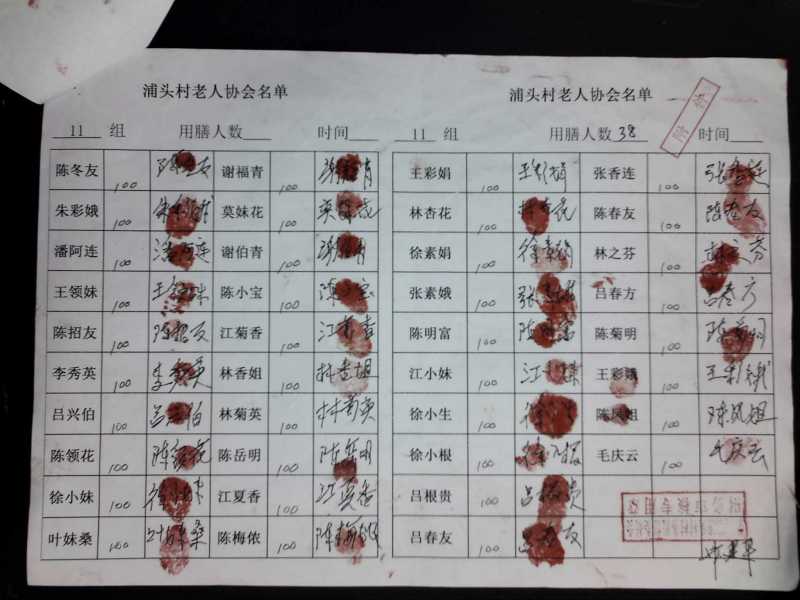 浦头村老人协会名单
11 组 用膳人数 时间
陈冬友 100 陈冬友 谢福青 100 谢福青
朱彩娥 100 朱彩娥 莫妹花 100 莫妹花
潘阿连 100 潘阿连 谢伯青 100 谢伯青
王领妹 100 王领妹 陈小宝 100 陈小宝
陈招友 100 陈招友 江菊香 100 江菊香
李秀英 100 李秀英 林香姐 100 林香姐
吕兴伯 100 吕兴伯 林菊英 100 林菊英
陈领花 100 陈领花 陈岳明 100 陈岳明
徐小妹 100 徐小妹 江夏香 100 江夏香
叶妹桑 100 叶妹桑 陈梅侬 100 陈梅侬
浦头村老人协会名单
11 组 用膳人数 38 时间
附件
王彩娟 100 王彩娟 张香连 100 张香连
林杏花 100 林杏花 陈春友 100 陈春友
徐素娟 100 徐素娟 林之芬 100 林之芬
张素娥 100 张素娥 吕春方 100 吕春方
陈明富 100 陈明富 陈菊明 100 陈菊明
江小妹 100 江小妹 王彩娥 100 王彩娥
徐小生 100 徐小生 陈凤姐 100 陈凤姐
徐小根 100 徐小根 毛庆云 100 毛庆云
吕根贵 100 吕根贵
吕春友 100 吕春友